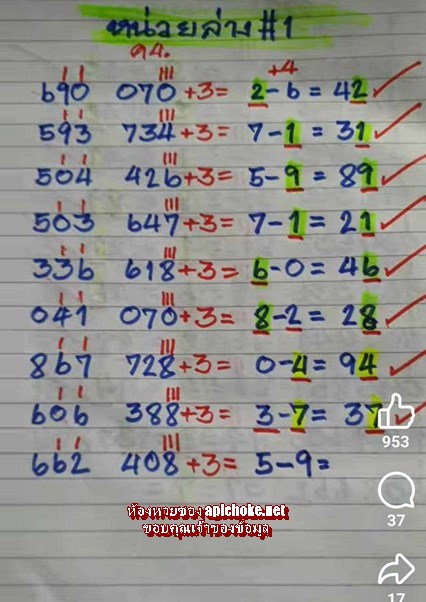 หน่วยล่าง#1
ค4.
+4
690 070+3= 2-6=42
593 734+3= 7-1=31
504 426+3= 5-9=89
503 647+3= 7-1=21
336 618+3= 6-0=46
041 070+3= 8-2=28
867 728+3= 0-4=94
606 388+3= 3-7=37
953
662 408+3= 5-9=
ห้องหวยซอง apichoke.net
ขอบคุณเจ้าของข้อมูล
37
17